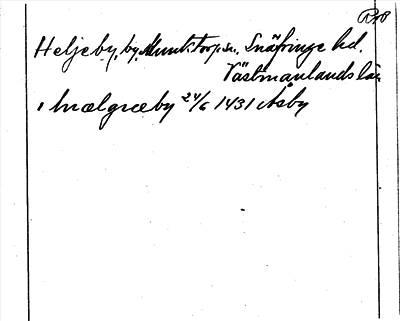 Heljeby, by, Munktorp sn. Snäfringe hd.
Västmanlands län
i hwælgræby 24/6 1431 Åsby